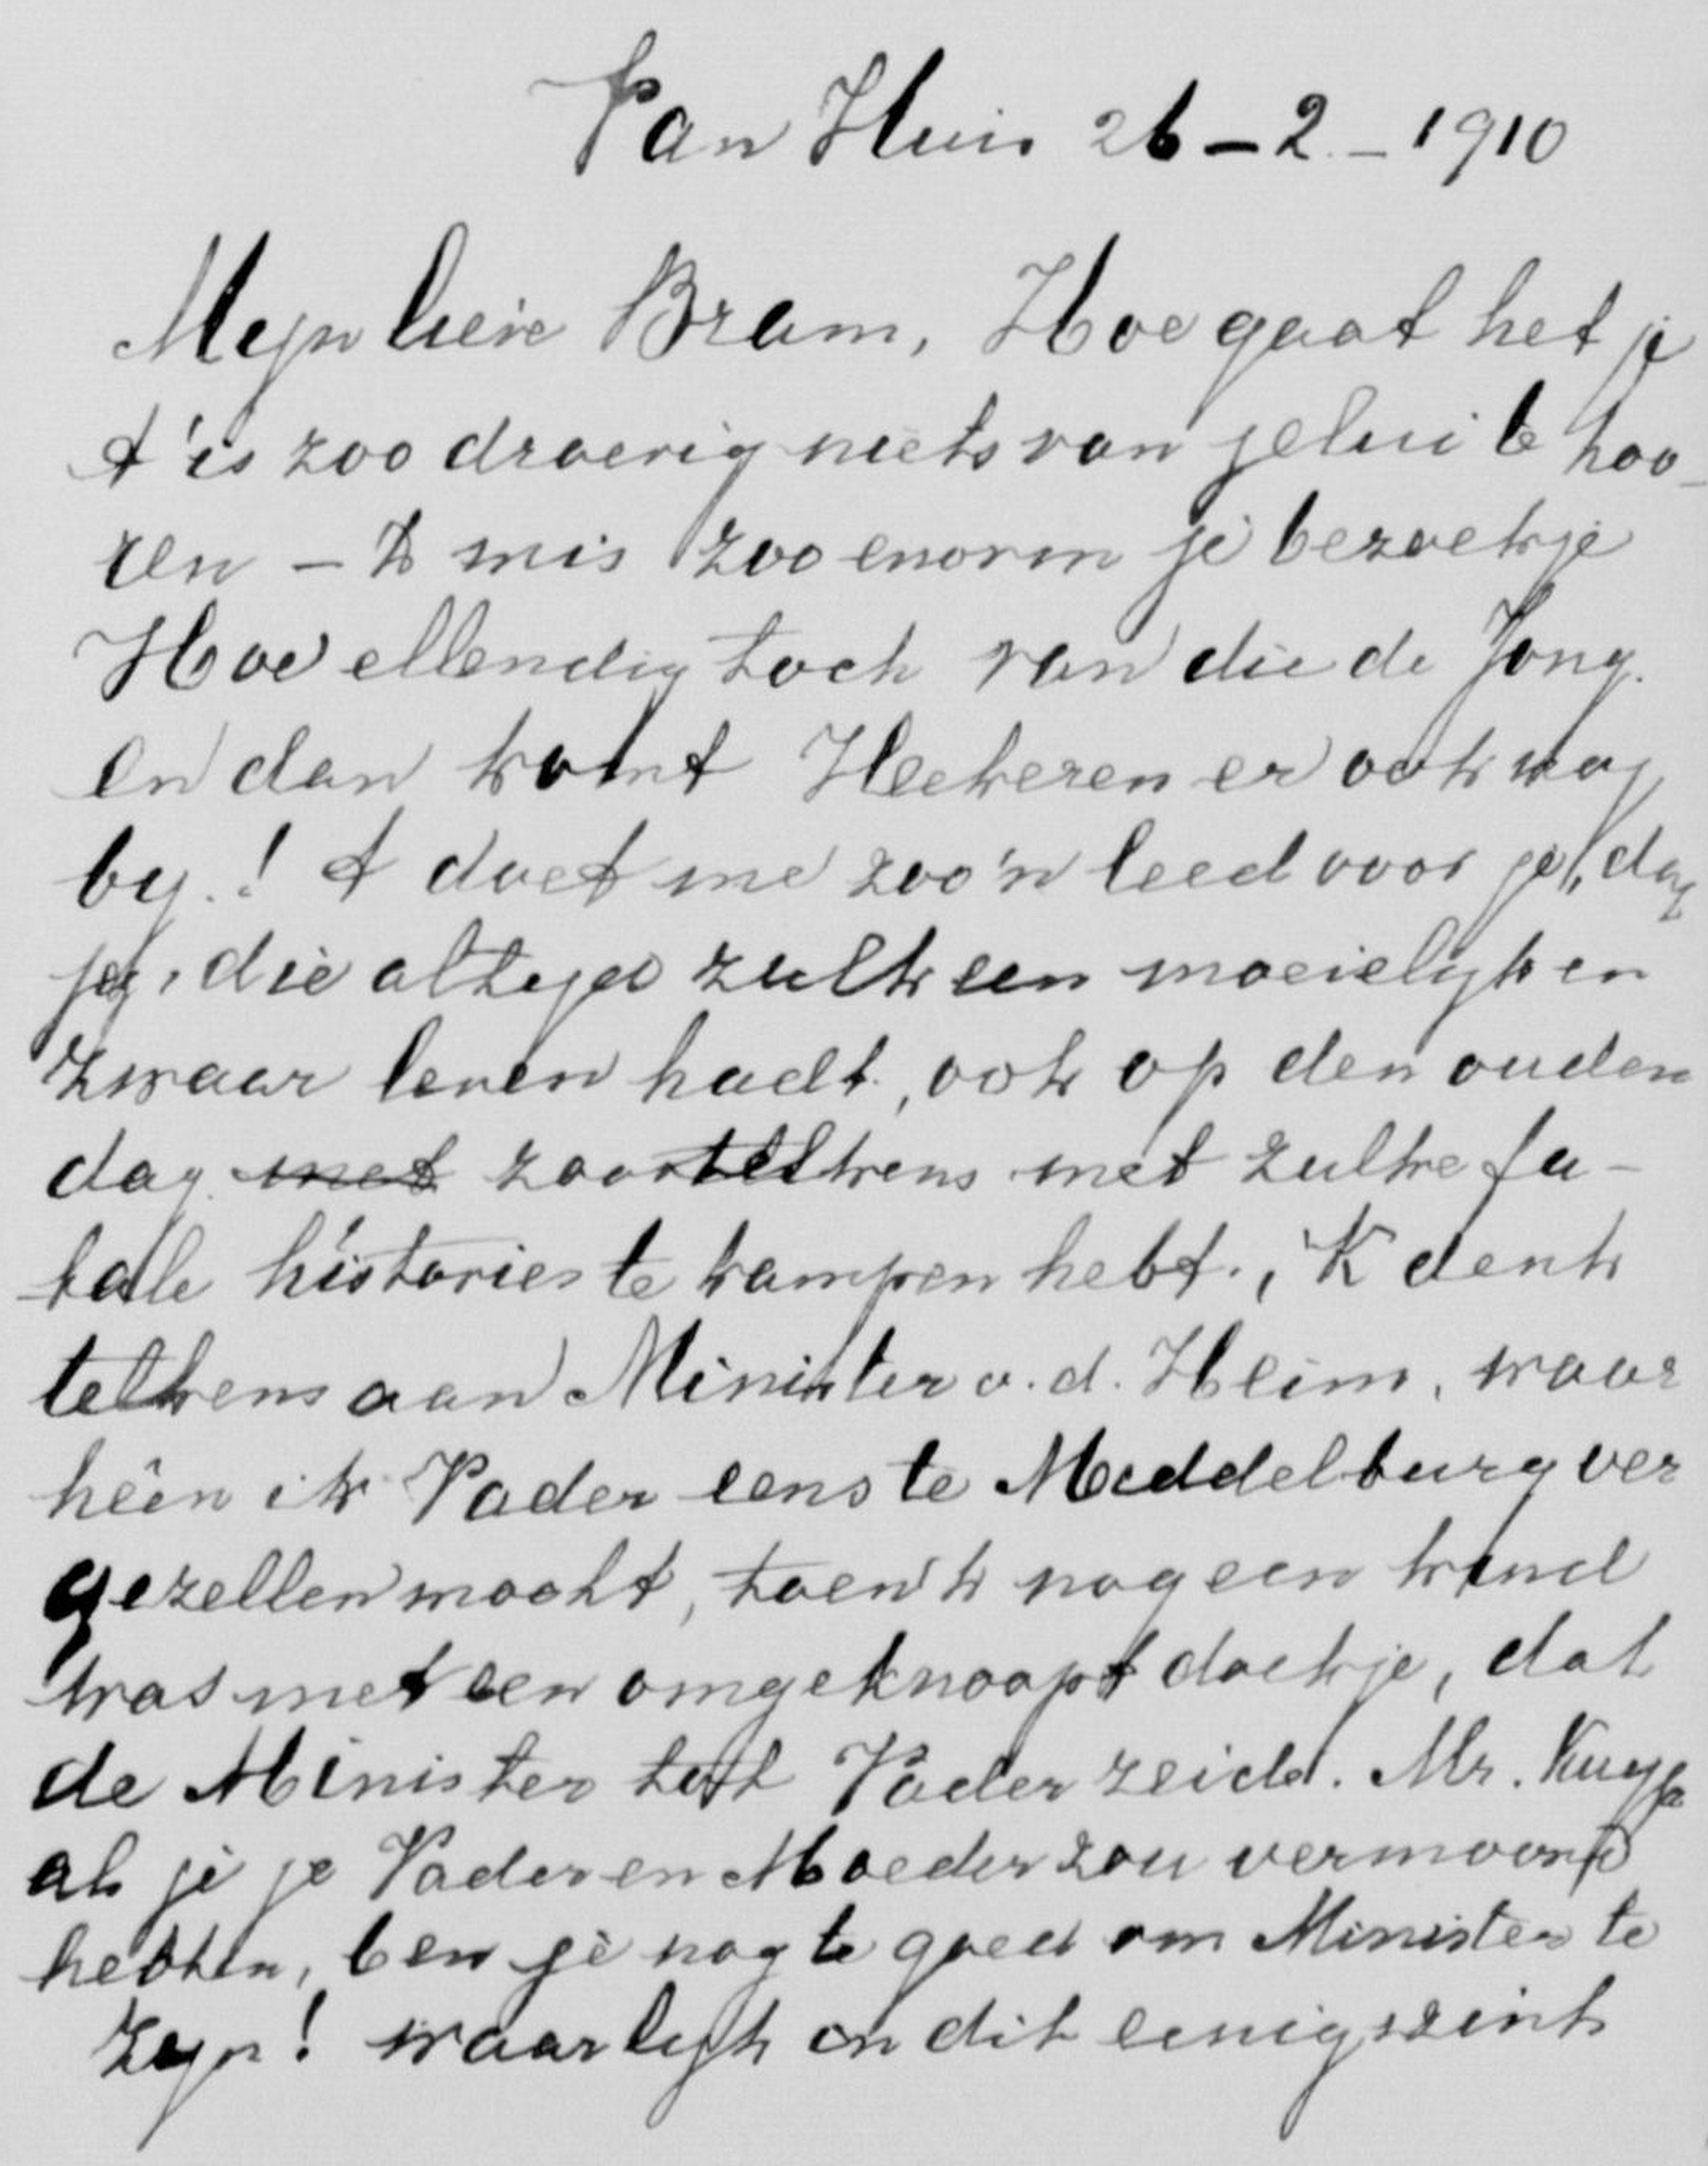 Van Huis 26-2-1910
Mijn lieve Bram, Hoe gaat het je
t'is zoo droevig niets van jelui te hoo-
ren - k mis zoo enorm je bezoekje
Hoe ellendig toch van die de Jong.
en dan komt Heekeren er ook nog
by.! t doet me zoo'n leed voor je, dat
jij, die altijd zulk een moeielijk en
zwaar leven hadt, ook op den ouden
dag met zoo telkens met zulke fa-
tale histories te kampen hebt., 'K denk
telkens aan Minister v. d. Heim, waar
hêen ik Vader eens te Middelburg ver
gezellen mocht, toen 'k nog een kind
was met een omgeknoopt doekje, dat
de Minister tot Vader zeide. Mr. Kuyp
als je je Vader en Moeder zou vermoord
hebben, ben je nog te goed om Minister te
zyn! waarlijk in dit eenigszins